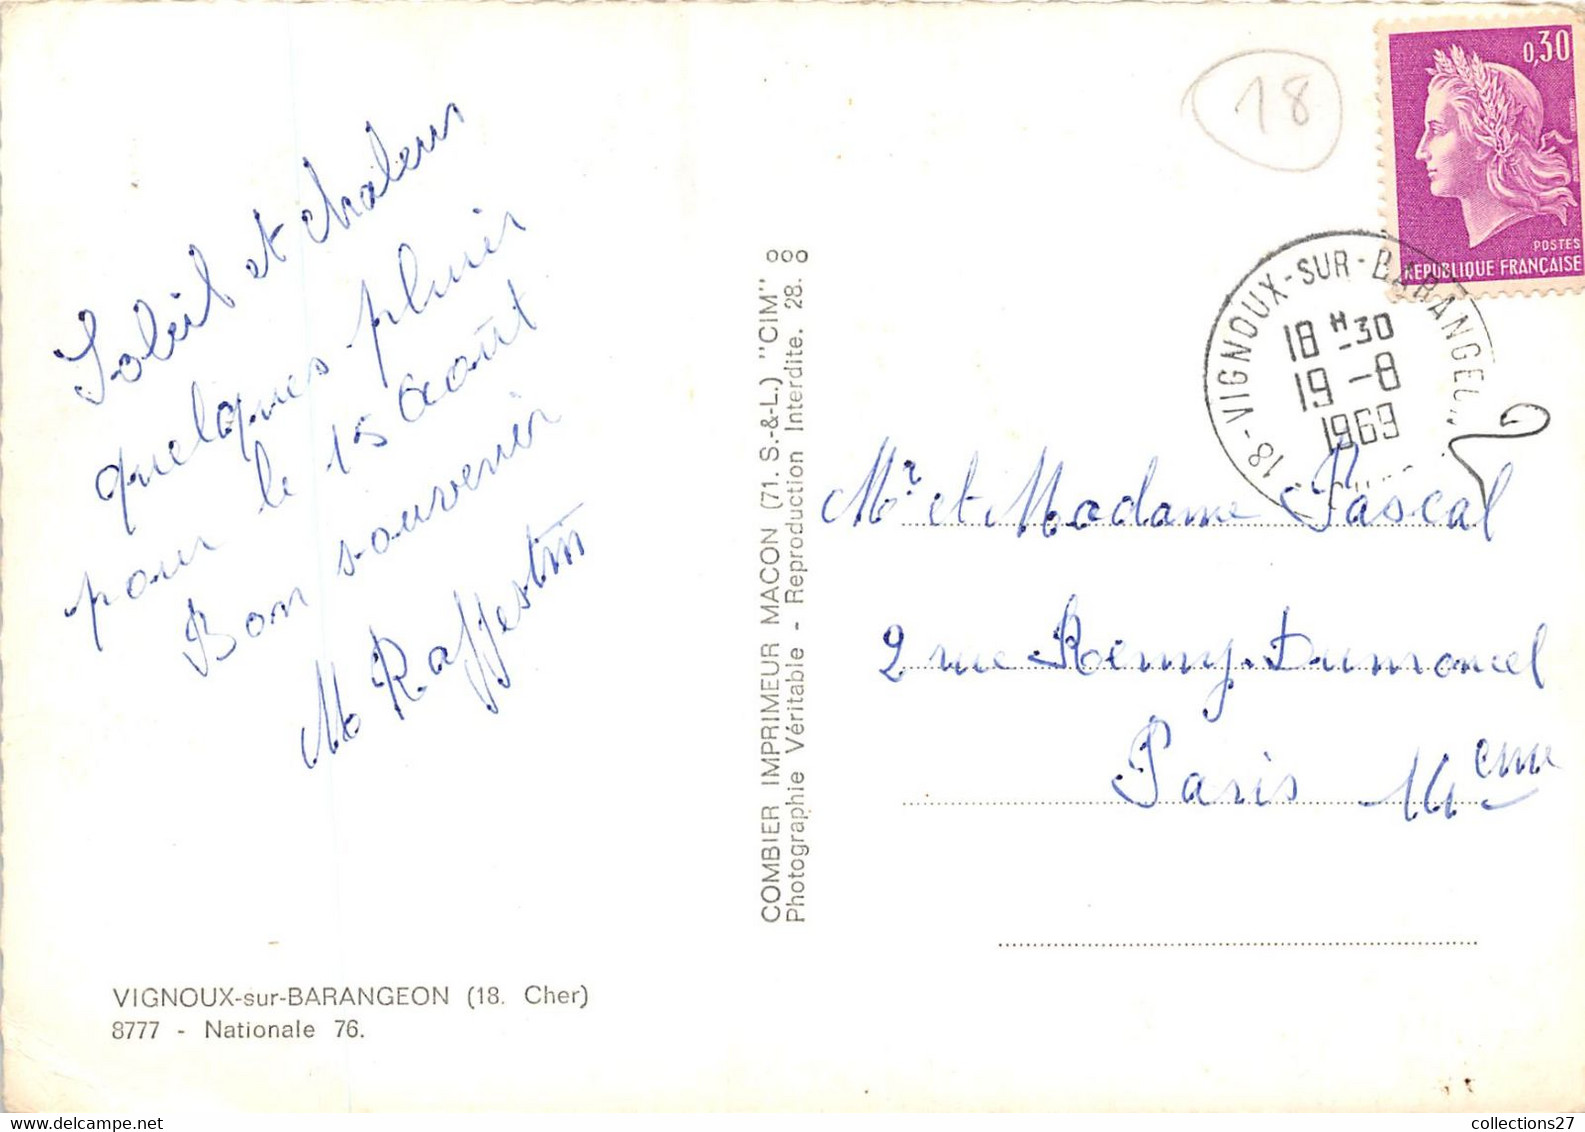 Soleil et chaleur
quelques pluies
pour le 15 aout
Bon souvenir
M Raffestin
VIGNOUX-sur-BARANGEON (18. Cher)
8777 - Nationale 76.
COMBIER IMPRIMEUR MACON (71. S.-&-L.) "CIM"
Photographie Véritable - Reproduction Interdite. 28.
18
0,30
POSTES
REPUBLIQUE FRANÇAISE
18-VIGNOUX-SUR-BARANGEON
18H30
19-8
1969
Mr et Madame Pascal
2 rue Rémy-Dumoncel
Paris 14eme
collections27